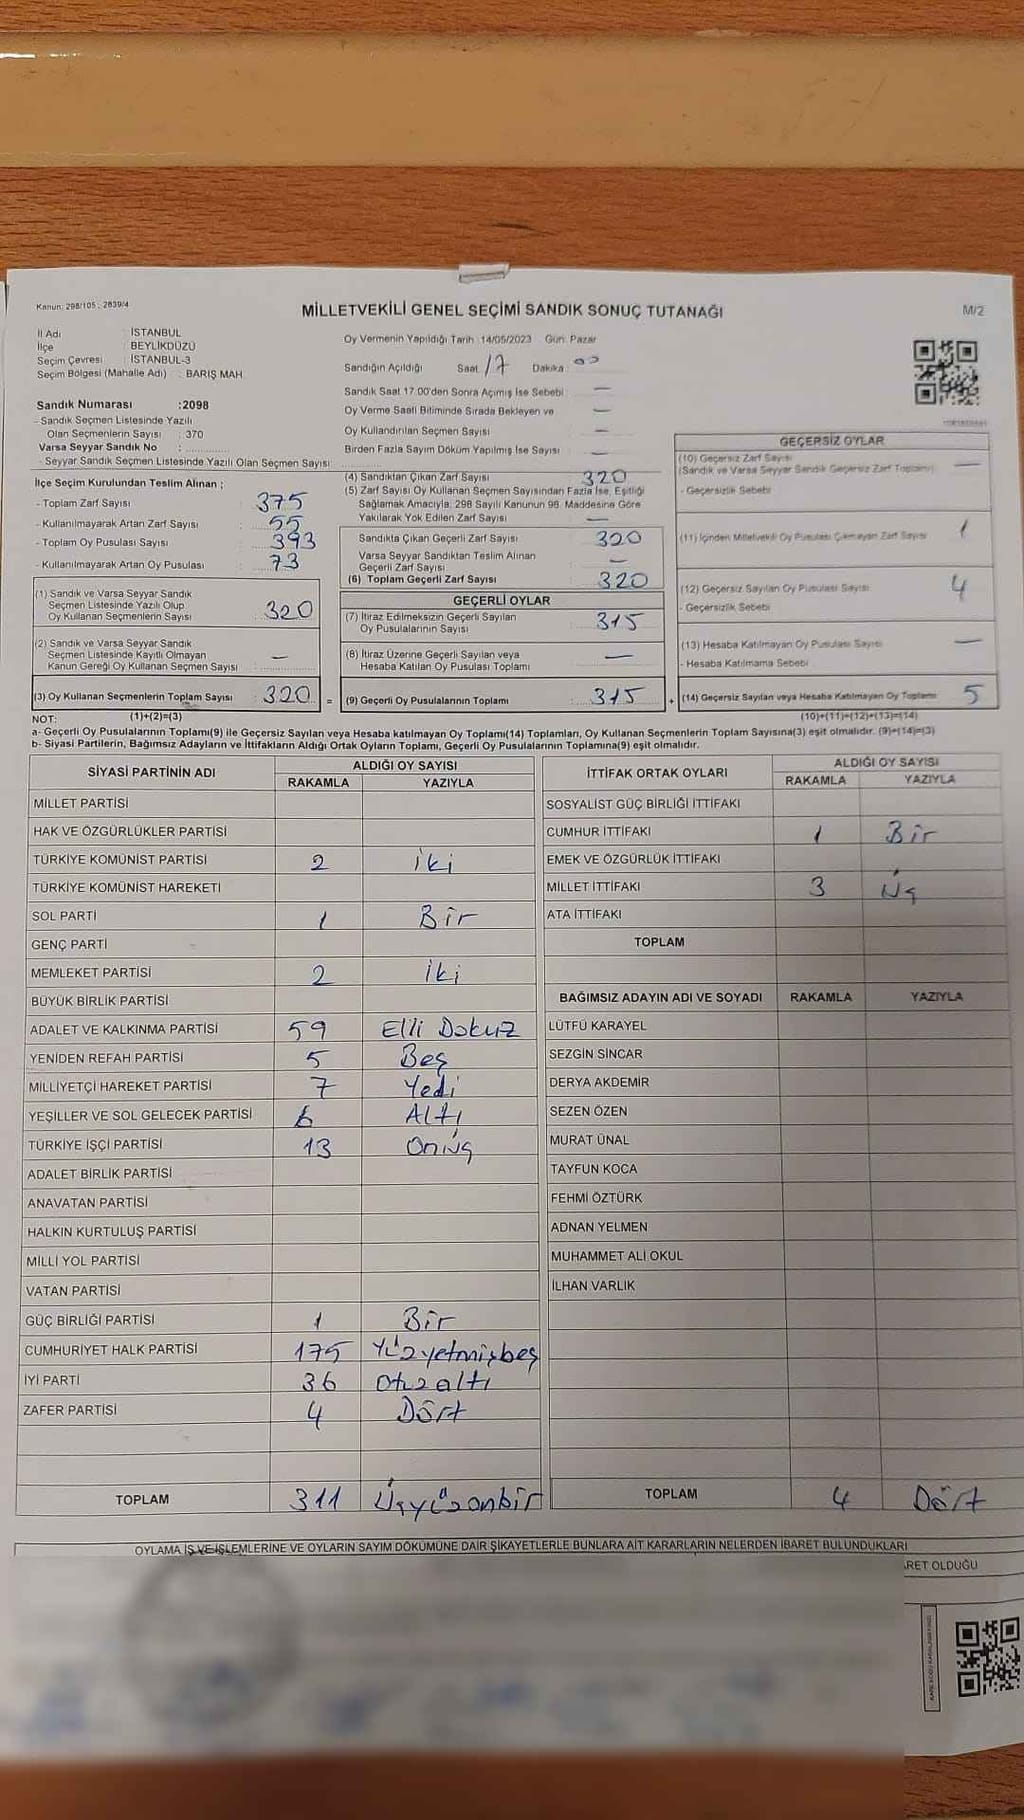 Kanun: 298/105 ; 2839/4
MİLLETVEKİLİ GENEL SEÇİMİ SANDIK SONUÇ TUTANAĞI
M/2
İl Adı : İSTANBUL
İlçe : BEYLİKDÜZÜ
Seçim Çevresi : İSTANBUL-3
Seçim Bölgesi (Mahalle Adı) : BARIŞ MAH.
Sandık Numarası :2098
- Sandık Seçmen Listesinde Yazılı
Olan Seçmenlerin Sayısı : 370
Varsa Seyyar Sandık No :
- Seyyar Sandık Seçmen Listesinde Yazılı Olan Seçmen Sayısı:
İlçe Seçim Kurulundan Teslim Alınan ;
- Toplam Zarf Sayısı : 375
- Kullanılmayarak Artan Zarf Sayısı : 55
- Toplam Oy Pusulası Sayısı : 393
- Kullanılmayarak Artan Oy Pusulası : 73
(1) Sandık ve Varsa Seyyar Sandık
Seçmen Listesinde Yazılı Olup
Oy Kullanan Seçmenlerin Sayısı : 320
(2) Sandık ve Varsa Seyyar Sandık
Seçmen Listesinde Kayıtlı Olmayan
Kanun Gereği Oy Kullanan Seçmen Sayısı : —
(3) Oy Kullanan Seçmenlerin Toplam Sayısı : 320 =
Oy Vermenin Yapıldığı Tarih :14/05/2023 Gün: Pazar
Sandığın Açıldığı Saat: 17 Dakika : 00
Sandık Saat 17:00'den Sonra Açımış İse Sebebi : —
Oy Verme Saati Bitiminde Sırada Bekleyen ve —
Oy Kullandırılan Seçmen Sayısı : —
Birden Fazla Sayım Döküm Yapılmış İse Sayısı : —
(4) Sandıktan Çıkan Zarf Sayısı : 320
(5) Zarf Sayısı Oy Kullanan Seçmen Sayısından Fazla İse, Eşitliği
Sağlamak Amacıyla; 298 Sayılı Kanunun 98. Maddesine Göre
Yakılarak Yok Edilen Zarf Sayısı : —
Sandıkta Çıkan Geçerli Zarf Sayısı : 320
Varsa Seyyar Sandıktan Teslim Alınan
Geçerli Zarf Sayısı : —
(6) Toplam Geçerli Zarf Sayısı : 320
GEÇERLİ OYLAR
(7) İtiraz Edilmeksizin Geçerli Sayılan
Oy Pusulalarının Sayısı : 315
(8) İtiraz Üzerine Geçerli Sayılan veya
Hesaba Katılan Oy Pusulası Toplamı : —
(9) Geçerli Oy Pusulalarının Toplamı : 315 +
GEÇERSİZ OYLAR
(10) Geçersiz Zarf Sayısı
(Sandık ve Varsa Seyyar Sandık Geçersiz Zarf Toplamı) : —
- Geçersizlik Sebebi
(11) İçinden Milletvekili Oy Pusulası Çıkmayan Zarf Sayısı : 1
(12) Geçersiz Sayılan Oy Pusulası Sayısı : 4
- Geçersizlik Sebebi
(13) Hesaba Katılmayan Oy Pusulası Sayısı : —
- Hesaba Katılmama Sebebi
(14) Geçersiz Sayılan veya Hesaba Katılmayan Oy Toplamı : 5
NOT: (1)+(2)=(3)
(10)+(11)+(12)+(13)=(14)
a- Geçerli Oy Pusulalarının Toplamı(9) ile Geçersiz Sayılan veya Hesaba katılmayan Oy Toplamı(14) Toplamları, Oy Kullanan Seçmenlerin Toplam Sayısına(3) eşit olmalıdır. (9)+(14)=(3)
b- Siyasi Partilerin, Bağımsız Adayların ve İttifakların Aldığı Ortak Oyların Toplamı, Geçerli Oy Pusulalarının Toplamına(9) eşit olmalıdır.
SİYASİ PARTİNİN ADI ALDIĞI OY SAYISI
RAKAMLA YAZIYLA
MİLLET PARTİSİ
HAK VE ÖZGÜRLÜKLER PARTİSİ
TÜRKİYE KOMÜNİST PARTİSİ 2 iki
TÜRKİYE KOMÜNİST HAREKETİ
SOL PARTİ 1 Bir
GENÇ PARTİ
MEMLEKET PARTİSİ 2 iki
BÜYÜK BİRLİK PARTİSİ
ADALET VE KALKINMA PARTİSİ 59 Elli Dokuz
YENİDEN REFAH PARTİSİ 5 Beş
MİLLİYETÇİ HAREKET PARTİSİ 7 Yedi
YEŞİLLER VE SOL GELECEK PARTİSİ 6 Altı
TÜRKİYE İŞÇİ PARTİSİ 13 Onüç
ADALET BİRLİK PARTİSİ
ANAVATAN PARTİSİ
HALKIN KURTULUŞ PARTİSİ
MİLLİ YOL PARTİSİ
VATAN PARTİSİ
GÜÇ BİRLİĞİ PARTİSİ 1 Bir
CUMHURİYET HALK PARTİSİ 175 Yüzyetmişbeş
İYİ PARTİ 36 Otuzaltı
ZAFER PARTİSİ 4 Dört
TOPLAM 311 Üçyüzonbir
İTTİFAK ORTAK OYLARI ALDIĞI OY SAYISI
RAKAMLA YAZIYLA
SOSYALİST GÜÇ BİRLİĞİ İTTİFAKI
CUMHUR İTTİFAKI 1 Bir
EMEK VE ÖZGÜRLÜK İTTİFAKI
MİLLET İTTİFAKI 3 Üç
ATA İTTİFAKI
TOPLAM
BAĞIMSIZ ADAYIN ADI VE SOYADI RAKAMLA YAZIYLA
LÜTFÜ KARAYEL
SEZGİN SİNCAR
DERYA AKDEMİR
SEZEN ÖZEN
MURAT ÜNAL
TAYFUN KOCA
FEHMİ ÖZTÜRK
ADNAN YELMEN
MUHAMMET ALİ OKUL
İLHAN VARLIK
TOPLAM 4 Dört
OYLAMA İŞ VE İŞLEMLERİNE VE OYLARIN SAYIM DÖKÜMÜNE DAİR ŞİKAYETLERLE BUNLARA AİT KARARLARIN NELERDEN İBARET BULUNDUKLARI
ARET OLDUĞU